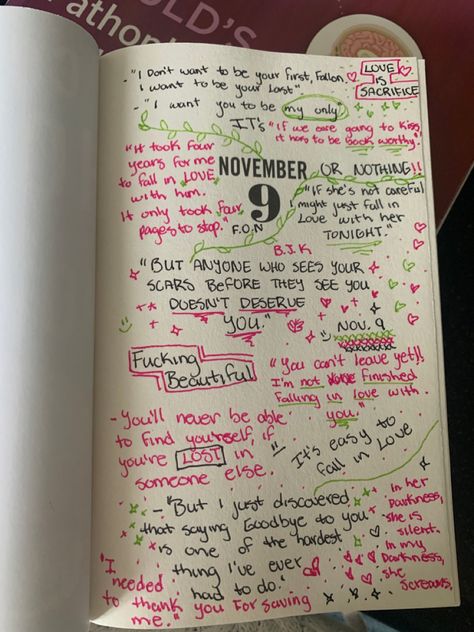 OLD'S
athon
- "I Don't want to be your first, Fallon.
I want to be your Last"
LOVE
IS
SACRIFICE
- "I want you to be my only"
IT's
"If we are going to kiss
it has to be book worthy."
"It took four
years for me
to fall in LOVE
with him.
It only took four
pages to stop."
NOVEMBER
9
OR NOTHING!!
F.O.N
"If she's not careful
I might just fall in
Love with her
TONIGHT."
B.J.K
"BUT ANYONE WHO SEES YOUR
SCARS BEFORE THEY SEE YOU
DOESN'T DESERVE
YOU."
NOV. 9
Fucking
Beautiful
"You can't leave yet!!
I'm not finished
falling in love with
you."
- You'll never be able
to find yourself if
you're LOST in
someone else.
"It's easy to
fall in Love
- "But I just discovered
that saying Goodbye to you
is one of the hardest
thing I've ever
had to do."
In her
Darkness,
she is
silent.
In my
Darkness,
she
Screams.
"I
needed
to thank you for saving
me."